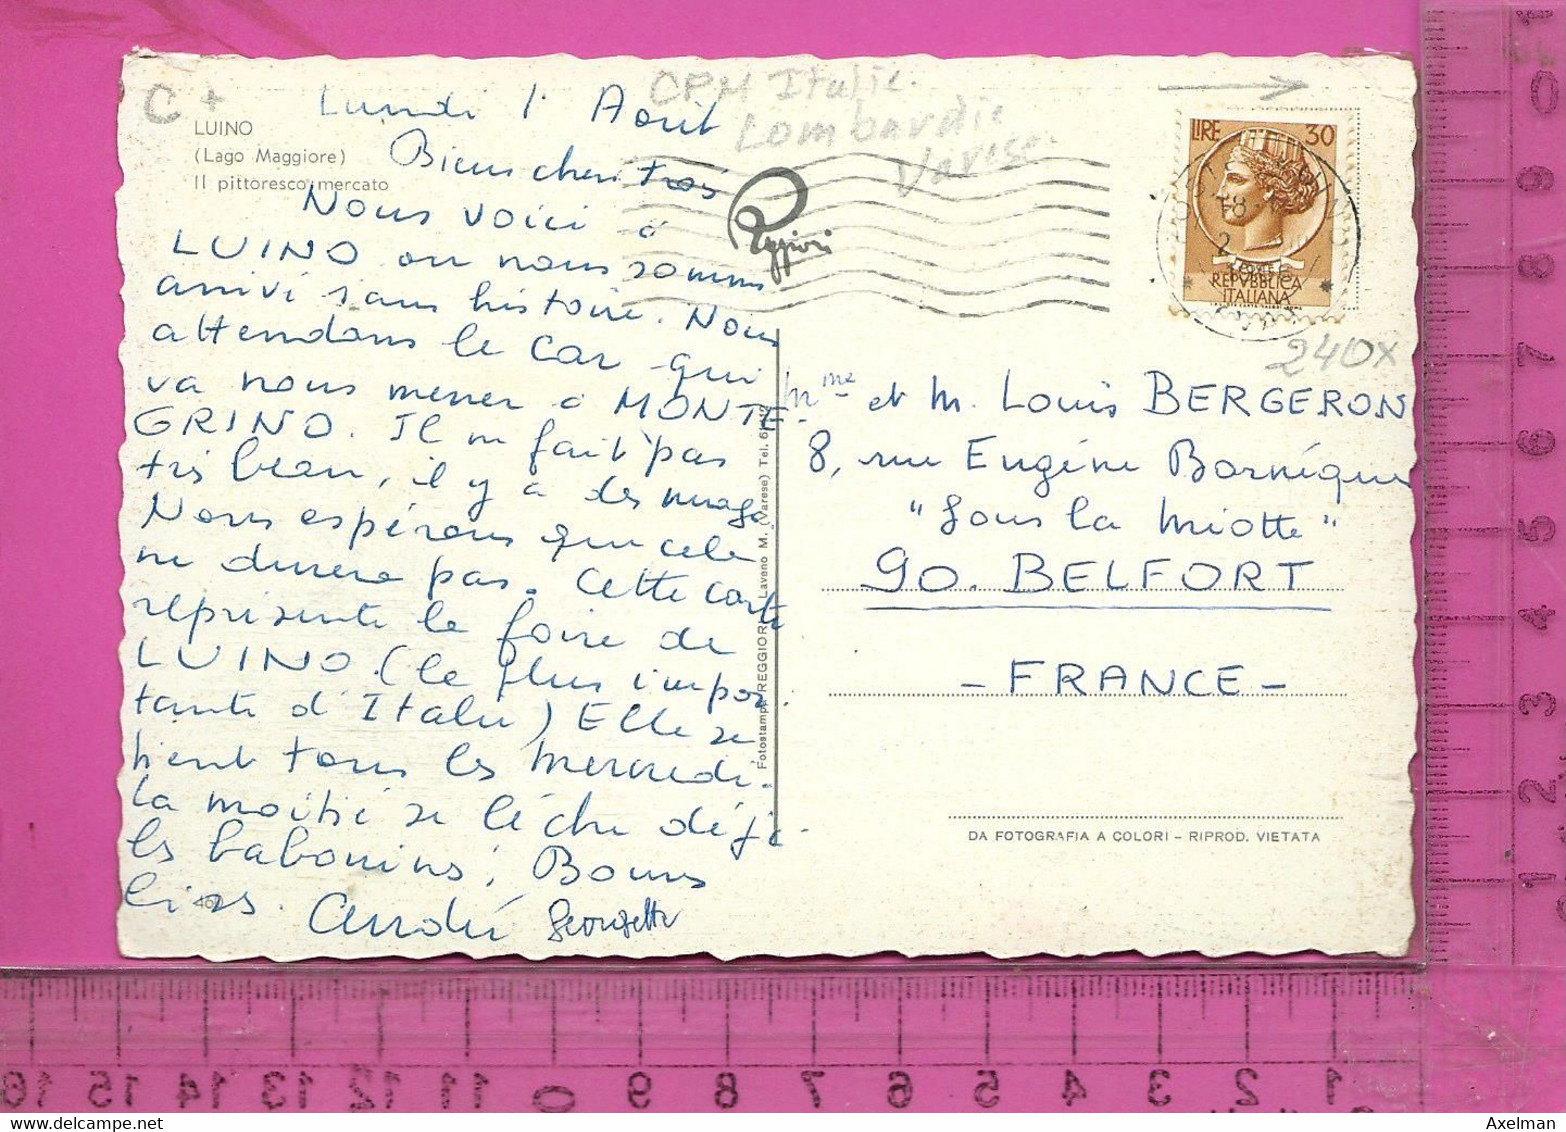 C +
LUINO
(Lago Maggiore)
Il pittoresco mercato
CPM Italie.
Lombardie
Varese.
Lundi 1. Août
Biens chers trois
Nous voici à
LUINO ou nous sommes
arrivé sans histoire. Nous
attendons le car qui
va nous mener à MONTE-
GRINO. Il ne fait pas
très beau, il y a des nuages
Nous espérons que cela
ne durera pas. Cette carte
représente la foire de
LUINO (la plus impor-
tante d'Italie) Elle se
tient tous les mercredi.
la moitié se lèche déjà
les babouines! Bons
lias. André Georgette
462
Reggiori
Fotostampa REGGIORI Laveno M. (Varese) Tel.
LIRE 30
REPVBBLICA
ITALIANA
240x
Mme et M. Louis BERGERON
8, rue Eugène Bornèque
"Sous la Miotte"
90. BELFORT
- FRANCE -
DA FOTOGRAFIA A COLORI - RIPROD. VIETATA
0
9
8
7
6
5
4
3
2
1
16 15 14 13 12 11 0 9 8 7 6 5 4 3 2 1
www.delcampe.net
Axelman